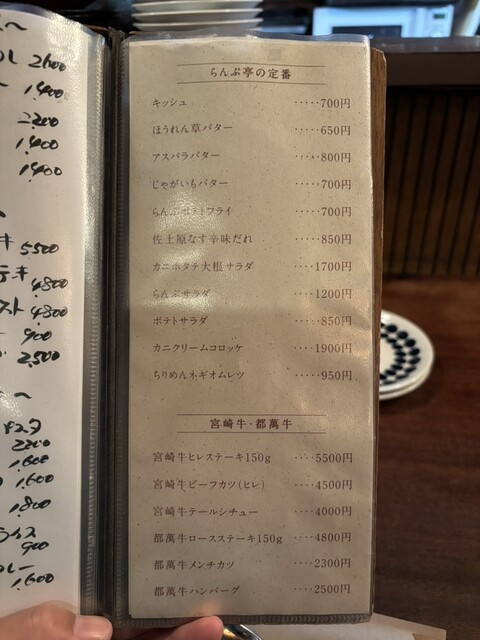 2600
1,400
2,200
1,400
1,400
キ 5500
テキ 4,800
スト 4,800
900
2,500
2200
1,600
1,600
1,800
ライス
900
カレー
1,600
らんぷ亭の定番
キッシュ ‥‥‥700円
ほうれん草バター ‥‥‥650円
アスパラバター ‥‥‥800円
じゃがいもバター ‥‥‥700円
らんぷポテトフライ ‥‥‥700円
佐土原なす辛味だれ ‥‥‥850円
カニホタテ大根サラダ ‥‥1700円
らんぷサラダ ‥‥1200円
ポテトサラダ ‥‥‥850円
カニクリームコロッケ ‥‥1900円
ちりめんネギオムレツ ‥‥‥950円
宮崎牛・都萬牛
宮崎牛ヒレステーキ150g ‥‥5500円
宮崎牛ビーフカツ(ヒレ) ‥‥4500円
宮崎牛テールシチュー ‥‥4000円
都萬牛ロースステーキ150g ‥‥4800円
都萬牛メンチカツ ‥‥2300円
都萬牛ハンバーグ ‥‥2500円